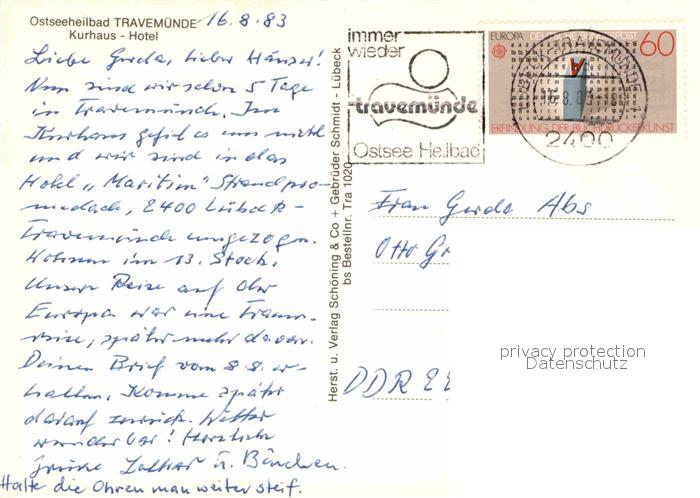 Ostseeheilbad TRAVEMÜNDE
Kurhaus - Hotel
16.8.83
Liebe Gerda, lieber Hänser!
Nun sind wir schon 5 Tage
in Travemünde. Im
Kurhaus gefiel es uns nicht
und wir sind in das
Hotel „Maritim" Strandpro-
menade, 2400 Lübeck-
Travemünde umgezogen.
Wohnen im 13. Stock.
Unsere Reise auf der
Europa war eine Traum-
reise, später mehr davon.
Deinen Brief vom 8.8. er-
halten. Komme später
darauf zurück. Wetter
wunderbar! Herzliche
Grüße Lothar u.
Halte die Ohren man weiter steif.
Herst. u. Verlag Schöning & Co + Gebrüder Schmidt - Lübeck
bs Bestellnr. Tra 1020
immer
wieder
travemünde
Ostsee Heilbad
EUROPA DEUTSCHE BUNDESPOST 60
ERFINDUNG DER BUCHDRUCKERKUNST
TRAVEMÜNDE
16.8.83
2400
Frau Gerda Abs
Otto Gr
DDR
privacy protection
Datenschutz